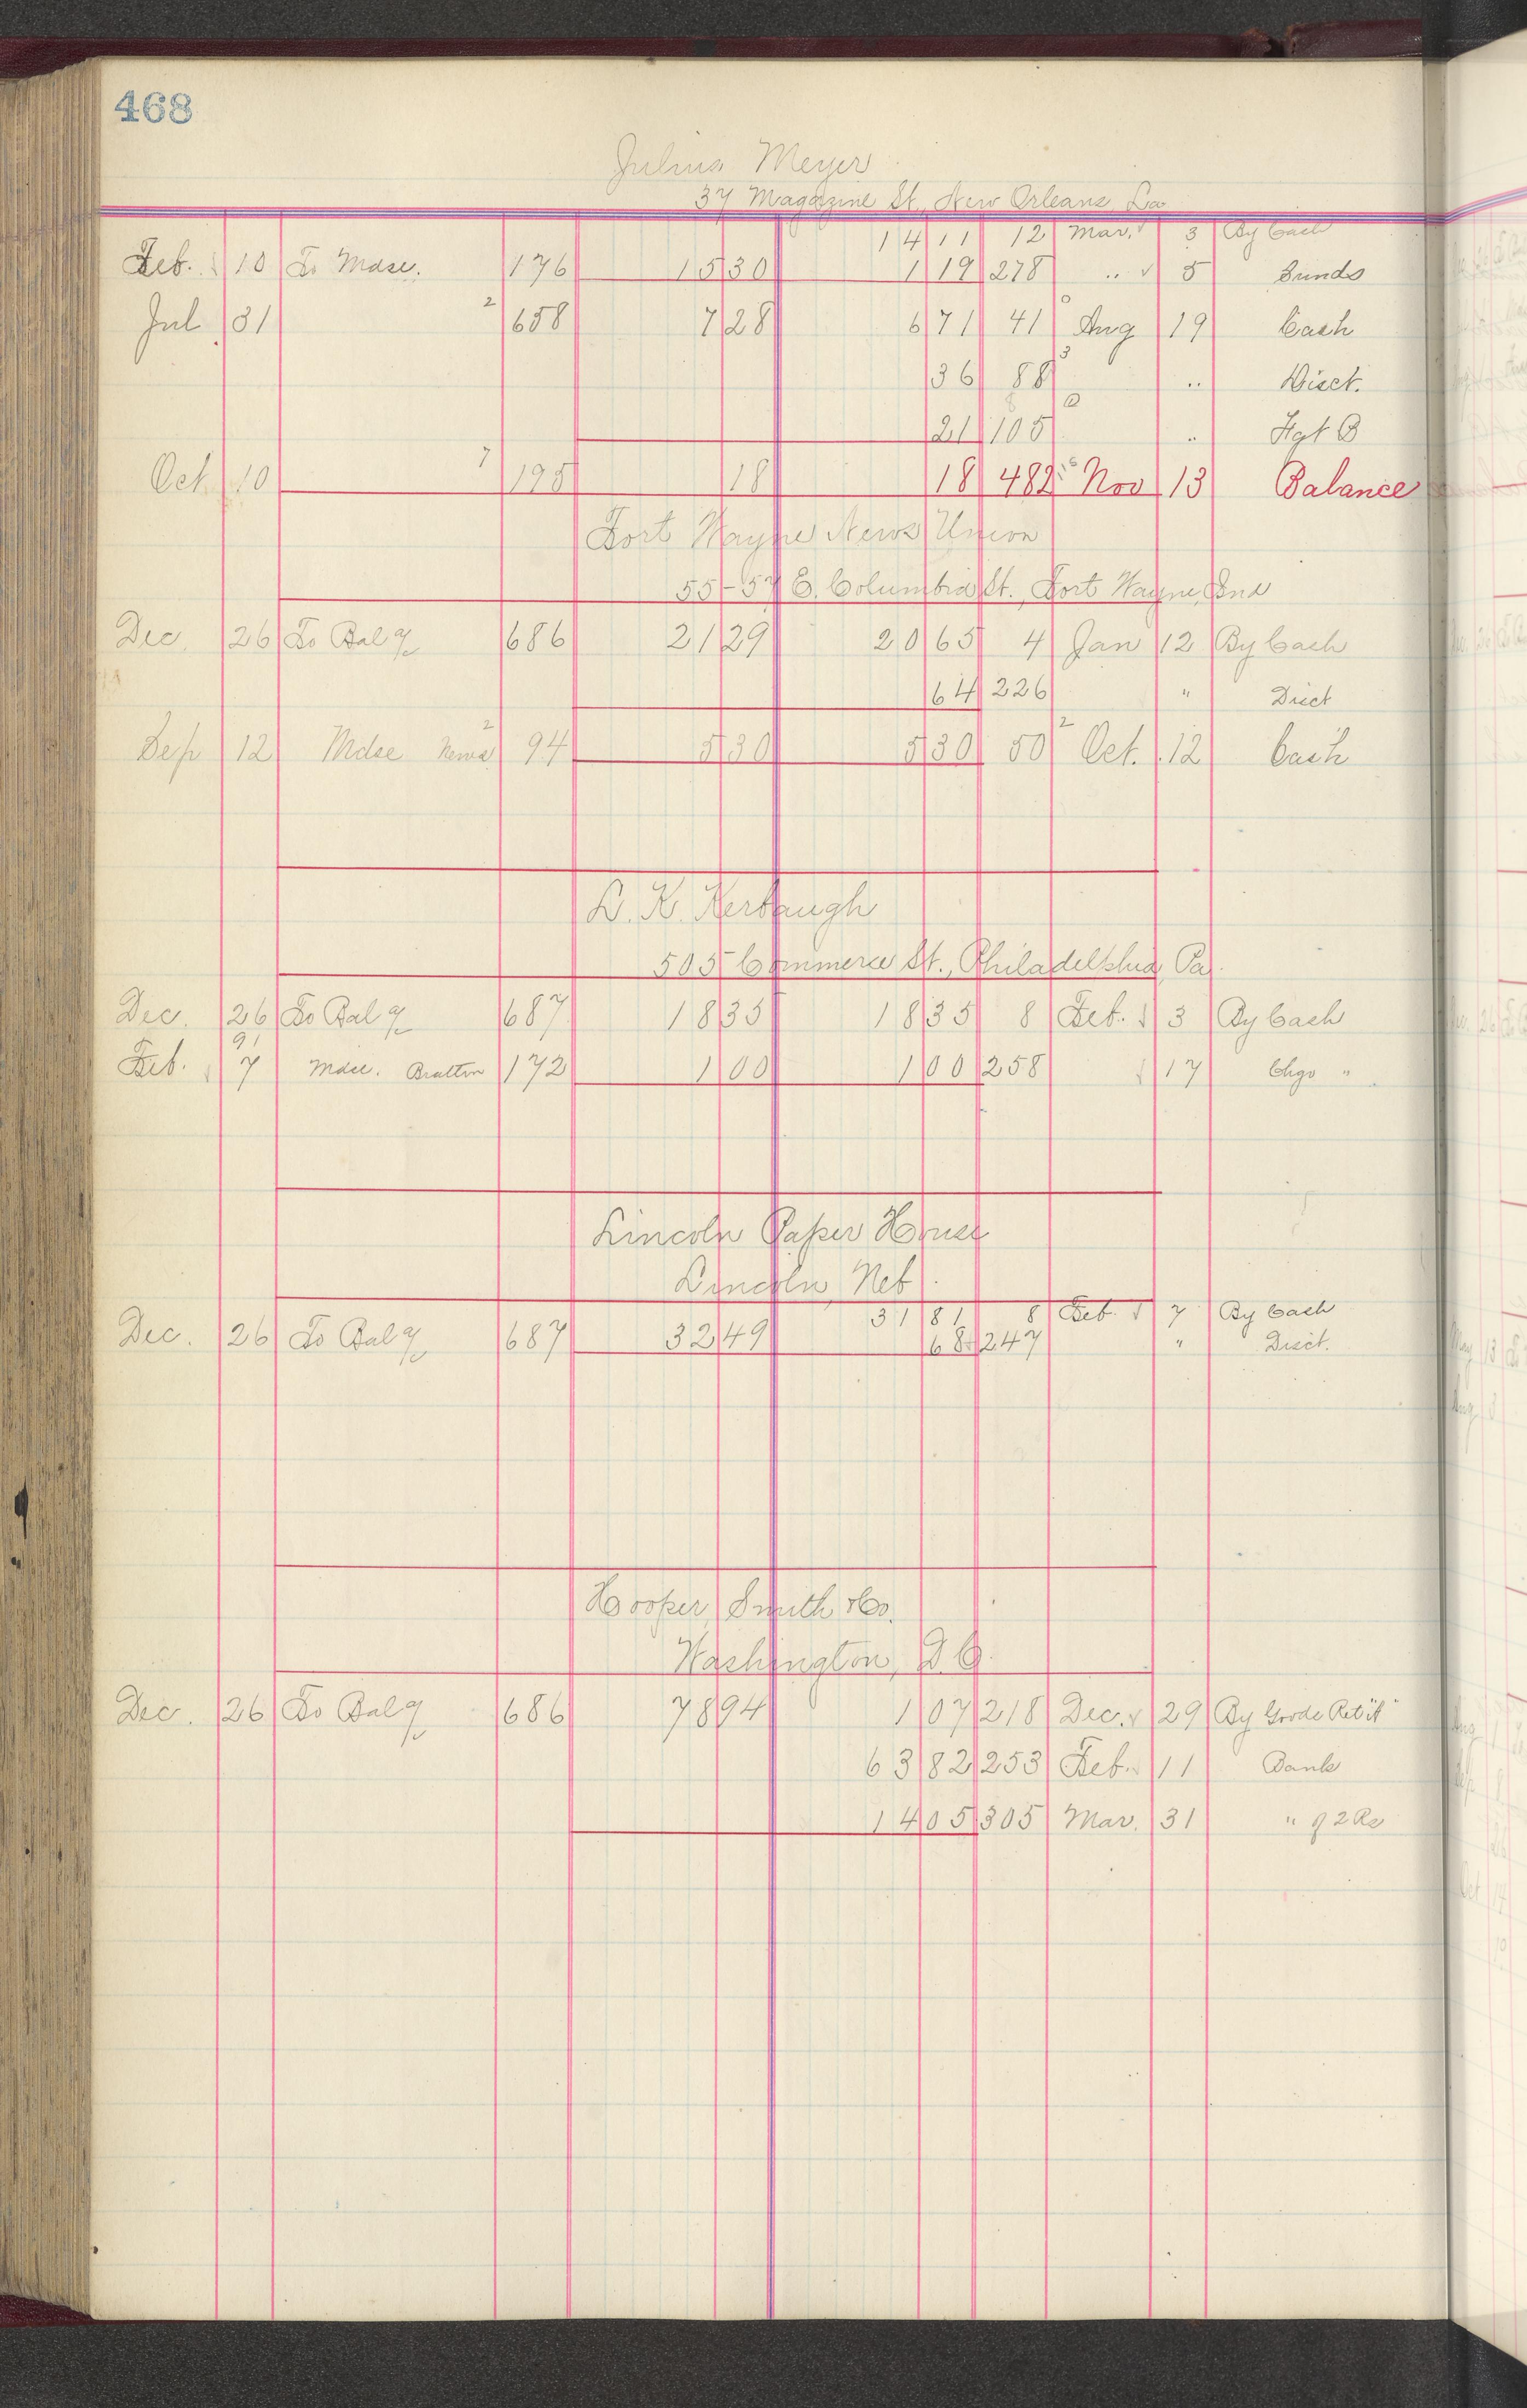 468
Julius Meyer
37 Magazine St., New Orleans, La
14 11 12 Mar. 3 By Cash
Feb. 10 To Mdse. 176 15 30 1 19 278 " 5 Sunds
Jul 31 2 658 7 28 6 71 41 Aug 19 Cash
36 88 3 " Disct.
21 105 " Fgt B
Oct 10 7 195 18 18 482 Nov 13 Balance
Fort Wayne News Union
55-57 E. Columbia St., Fort Wayne, Ind
Dec. 26 To Bal 686 21 29 20 65 4 Jan 12 By Cash
64 226 " Disct
Sep 12 Mdse News 2 94 5 30 5 30 50 2 Oct. 12 Cash
L. K. Kerbaugh
505 Commerce St., Philadelphia, Pa.
Dec. 26 To Bal 687 18 35 18 35 8 Feb. 3 By Cash
91
Feb. 7 Mdse. Bratton 172 1 00 1 00 258 17 Chgo "
Lincoln Paper House
Lincoln, Neb.
31 81 8 Feb. 7 By Cash
Dec. 26 To Bal 687 32 49 68 247 " Disct.
Hooper, Smith & Co.
Washington, D.C.
Dec. 26 To Bal 686 78 94 1 07 218 Dec. 29 By Goods Ret'd
63 82 253 Feb. 11 Bank
14 05 305 Mar. 31 "